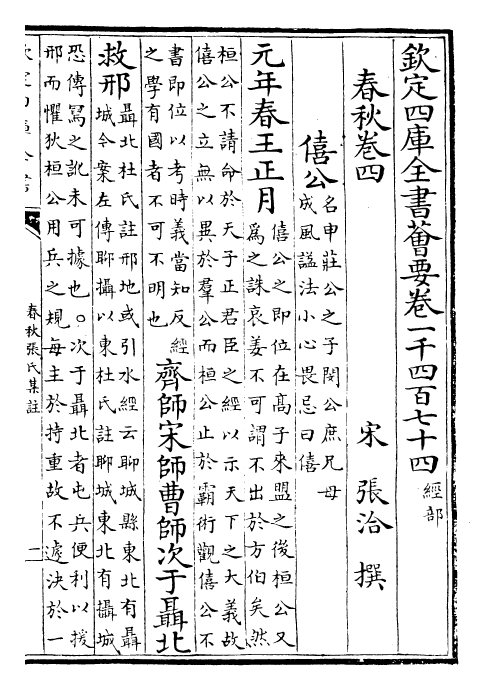 欽定四庫全書薈要卷一千四百七十四 經部
春秋卷四
宋 張洽 撰
僖公 名申莊公之子閔公庶兄母
成風諡法小心畏忌曰僖
元年春王正月 僖公之即位在高子來盟之後桓公又
爲之誅哀姜不可謂不出於方伯矣然
桓公不請命於天子正君臣之經以示天下之大義故
僖公之立無以異於羣公而桓公止於霸術觀僖公不
書即位以考時義當知反經
之學有國者不可不明也
齊師宋師曹師次于聶北
救邢 聶北杜氏註邢地或引水經云聊城縣東北有聶
城今案左傳聊攝以東杜氏註聊城東北有攝城
恐傳寫之訛未可據也。次于聶北者屯兵便利以援
邢而懼狄桓公用兵之規每主於持重故不遽決於一
春秋張氏集註
二